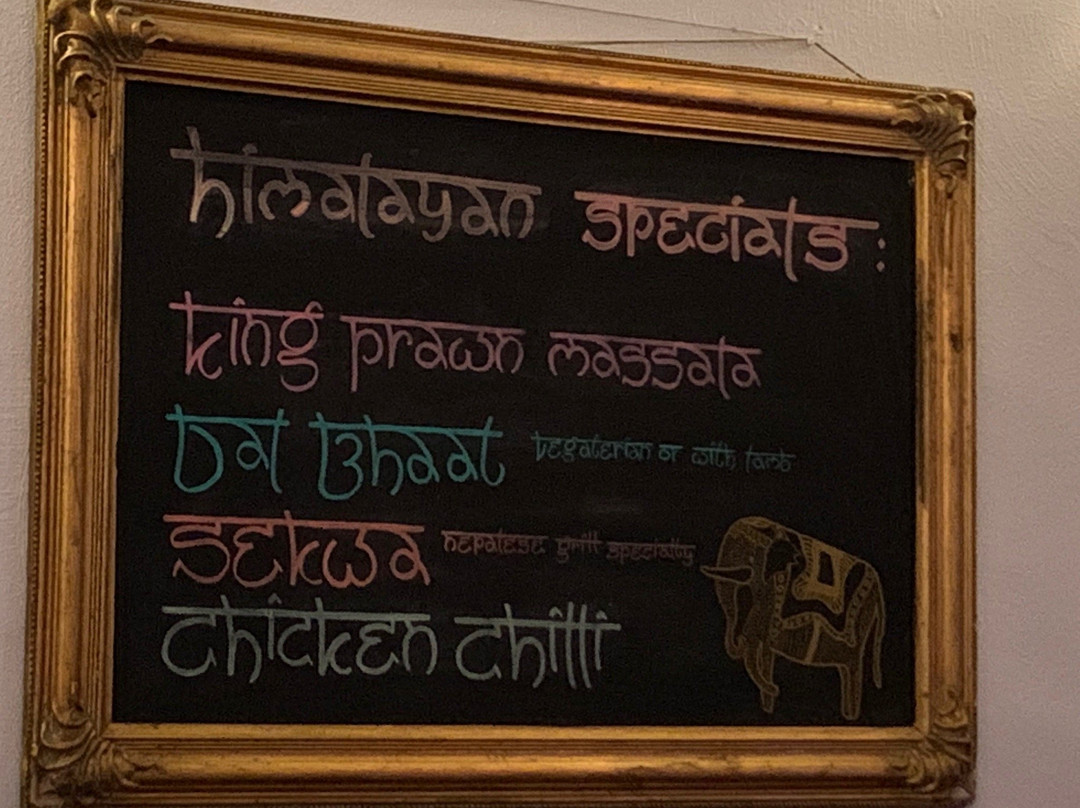 himalayan specials:
king prawn massala
Dal Bhaat vegaterian or with lamb
sekwa nepalese grill specialty
chicken chilli